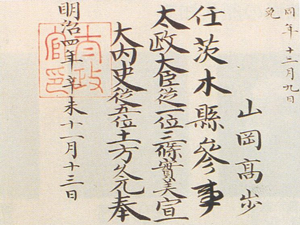 同年十二月九日
免
山岡高歩
任茨木縣參事
太政大臣從一位三條實美宣
大内史從五位土方久元奉
明治四年辛未十一月十三日
太政
官印